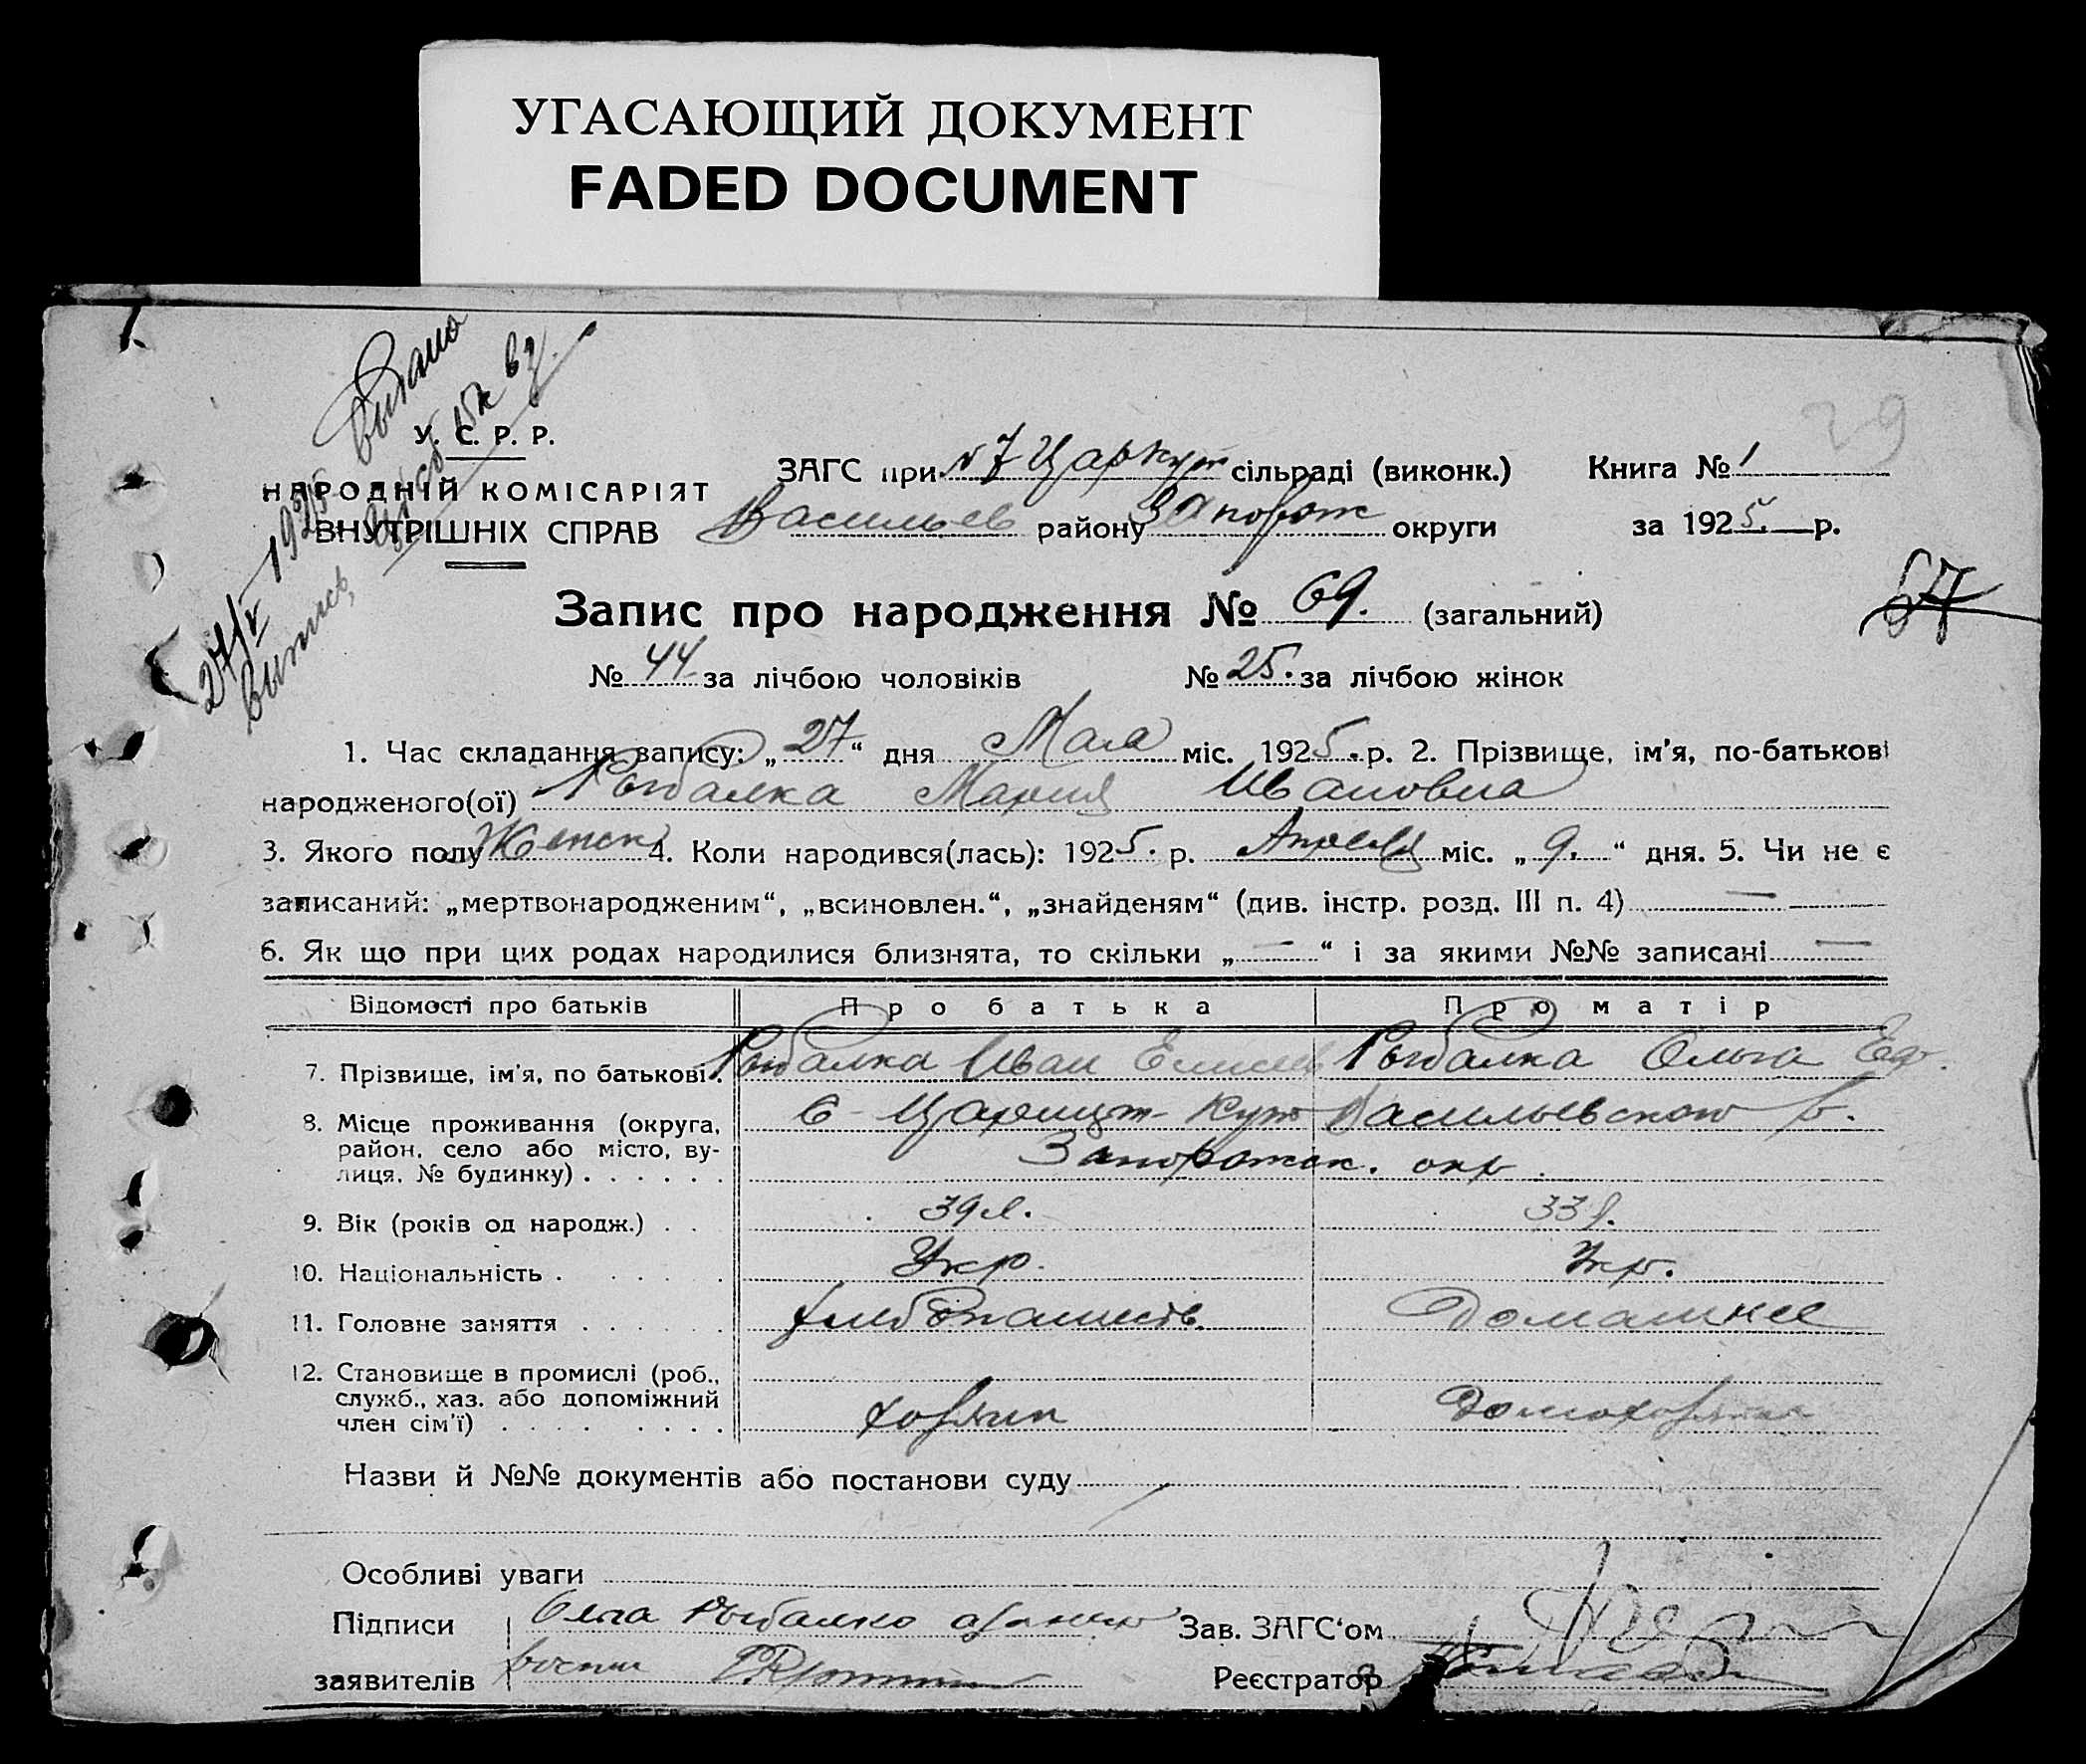 УГАСАЮЩИЙ ДОКУМЕНТ
FADED DOCUMENT
29
Выдана
У. С. Р. Р.
НАРОДНІЙ КОМІСАРІЯТ
ВНУТРІШНІХ СПРАВ
27/V 1925
выпись
ЗАГС при №7 Царкут сільраді (виконк.) Книга № 1
Васильев району Запорож округи за 1925. р.
57
Запис про народження № 69. (загальний)
№ 44 за лічбою чоловіків № 25. за лічбою жінок
1. Час складання запису: „27“ дня Мая міс. 1925. р. 2. Прізвище, ім'я, по-батькові
народженого(ої) Рыбалка Мария Ивановна
3. Якого полу Женск 4. Коли народився(лась): 1925. р. Апреля міс. „9.“ дня. 5. Чи не є
записаний: „мертвонародженим“, „всиновлен.“, „знайденям“ (див. інстр. розд. III п. 4) —
6. Як що при цих родах народилися близнята, то скільки „—“ і за якими №№ записані —
Відомості про батьків Про батька Про матір
7. Прізвище, ім'я, по батькові. Рыбалка Иван Елисеев Рыбалка Ольга Еф.
8. Місце проживання (округа, район, село або місто, вулиця, № будинку) С Царицт Кут Васильевского р.
Запорожск. окр.
9. Вік (років од народж.) 39 л. 33 л.
10. Національність Укр. Укр.
11. Головне заняття хлебопашеств. Домашнее
12. Становище в промислі (роб., служб., хаз. або допоміжний член сім'ї) хозяин Домохозяйка
Назви й №№ документів або постанови суду
Особливі уваги
Підписи Ольга Рыбалко Зав. ЗАГС'ом
заявителів Реєстратор